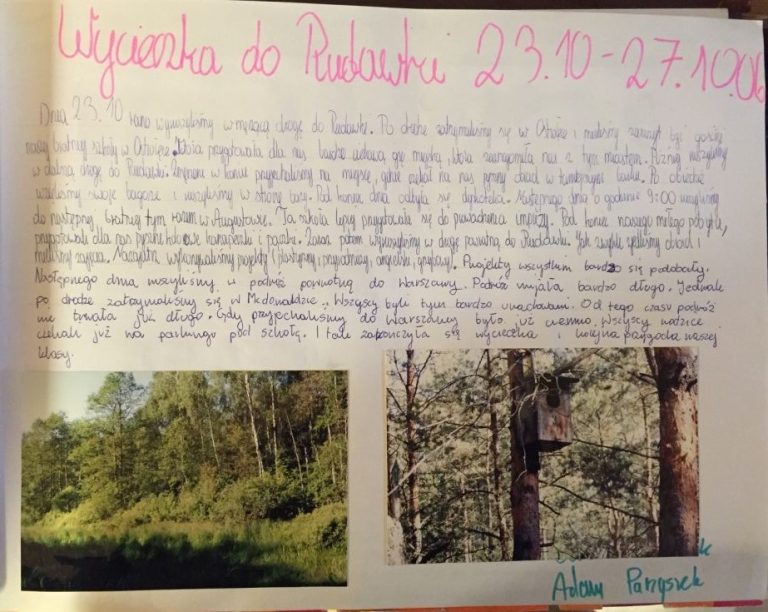 Wycieszka do Rudawki 23.10-27.10.06
Dnia 23.10 rano wyruszyliśmy w męczącą drogę do Rudawki. Po drodze zatrzymaliśmy się w Ostrołęce i mieliśmy zaszczyt być gośćmi
naszej bratniej szkoły w Ostrołęce. Która przygotowała dla nas bardzo ciekawą grę miejską, która zaznajomiła nas z tym miastem. Później ruszyliśmy
w dalszą drogę do Rudawki. w końcu przyjechaliśmy na miejsce, gdzie czekał na nas pyszny obiad w Po obiedzie
wzięliśmy swoje bagaże i ruszyliśmy w stronę Pod koniec dnia odbyła się dyskoteka. Następnego dnia o godzinie 9:00 ruszyliśmy
do następnej bratniej tym razem w Augustowie. Ta szkoła lepiej przygotowała się do prowadzenia imprezy. Pod koniec naszego miłego pobytu,
przygotowali dla nas pyszne kolorowe kanapeczki i pączki. Zaraz potem wyruszyliśmy w drogę powrotną do Rudawki. Jak zwykle zjedliśmy obiad i
mieliśmy zajęcia. wykonywaliśmy projekty (plastyczny, przyrodniczy, angielski, ). Projekty wszystkim bardzo się podobały.
Następnego dnia ruszyliśmy w podróż powrotną do Warszawy. Podróż mijała bardzo długo. Jednak
po drodze zatrzymaliśmy się w Mcdonaldzie. Wszyscy byli tym bardzo uradowani. Od tego czasu podróż
nie trwała już długo. Gdy przyjechaliśmy do Warszawy było już ciemno. Wszyscy rodzice
czekali już na parkingu pod szkołą. I tak zakończyła się wycieczka i kolejna przygoda naszej
klasy.
Adam Parzyszek